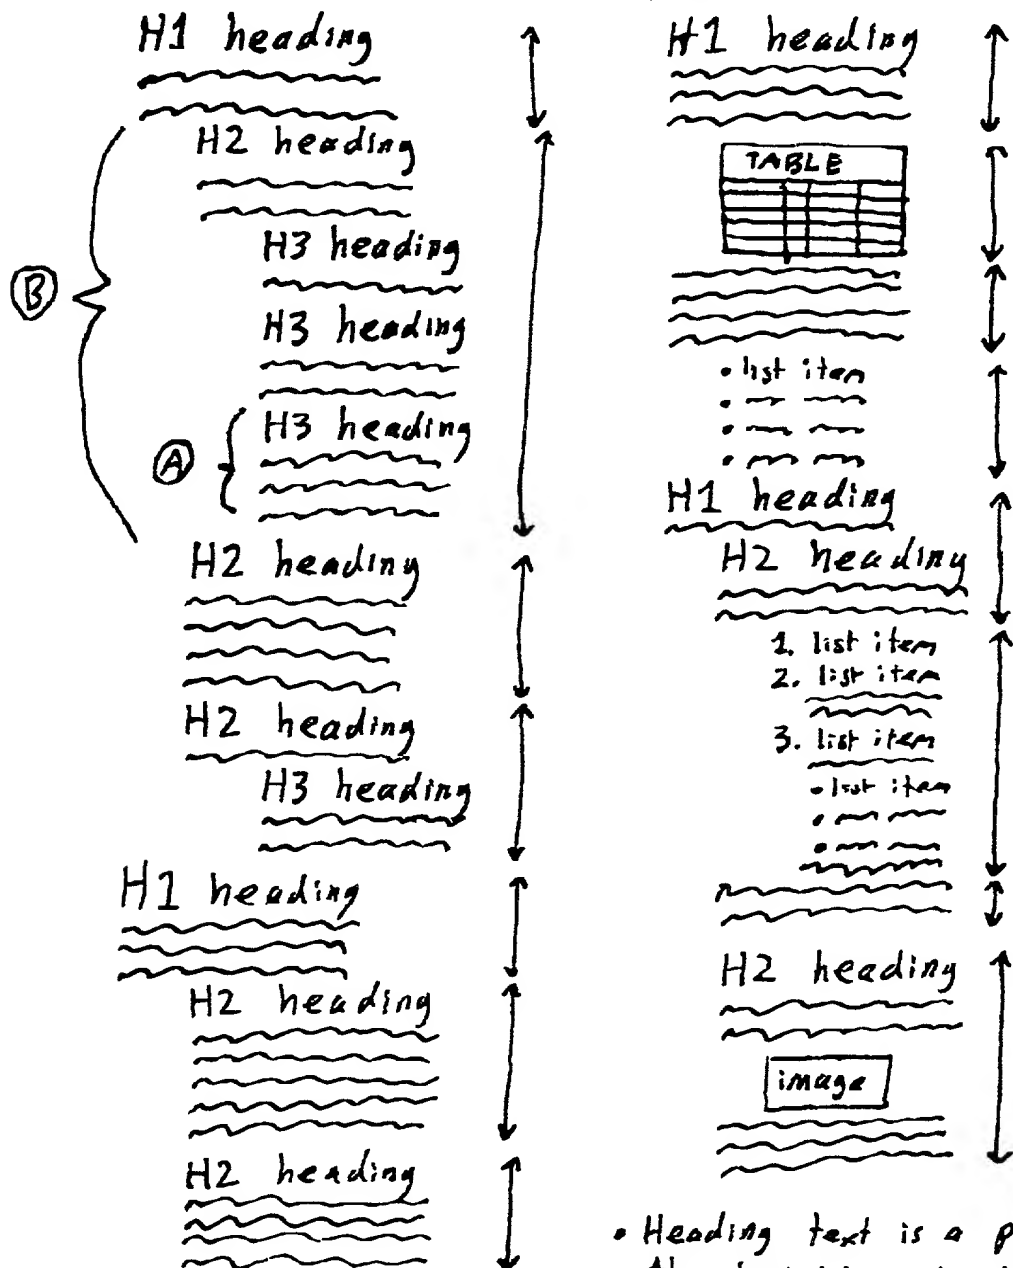 H1 heading
H2 heading
H3 heading
B
H3 heading
H3 heading
A
H2 heading
H2 heading
H3 heading
H1 heading
H2 heading
H2 heading
H1 heading
TABLE
• list item
•
•
•
H1 heading
H2 heading
1. list item
2. list item
3. list item
• list item
•
•
H2 heading
image
• Heading text is a